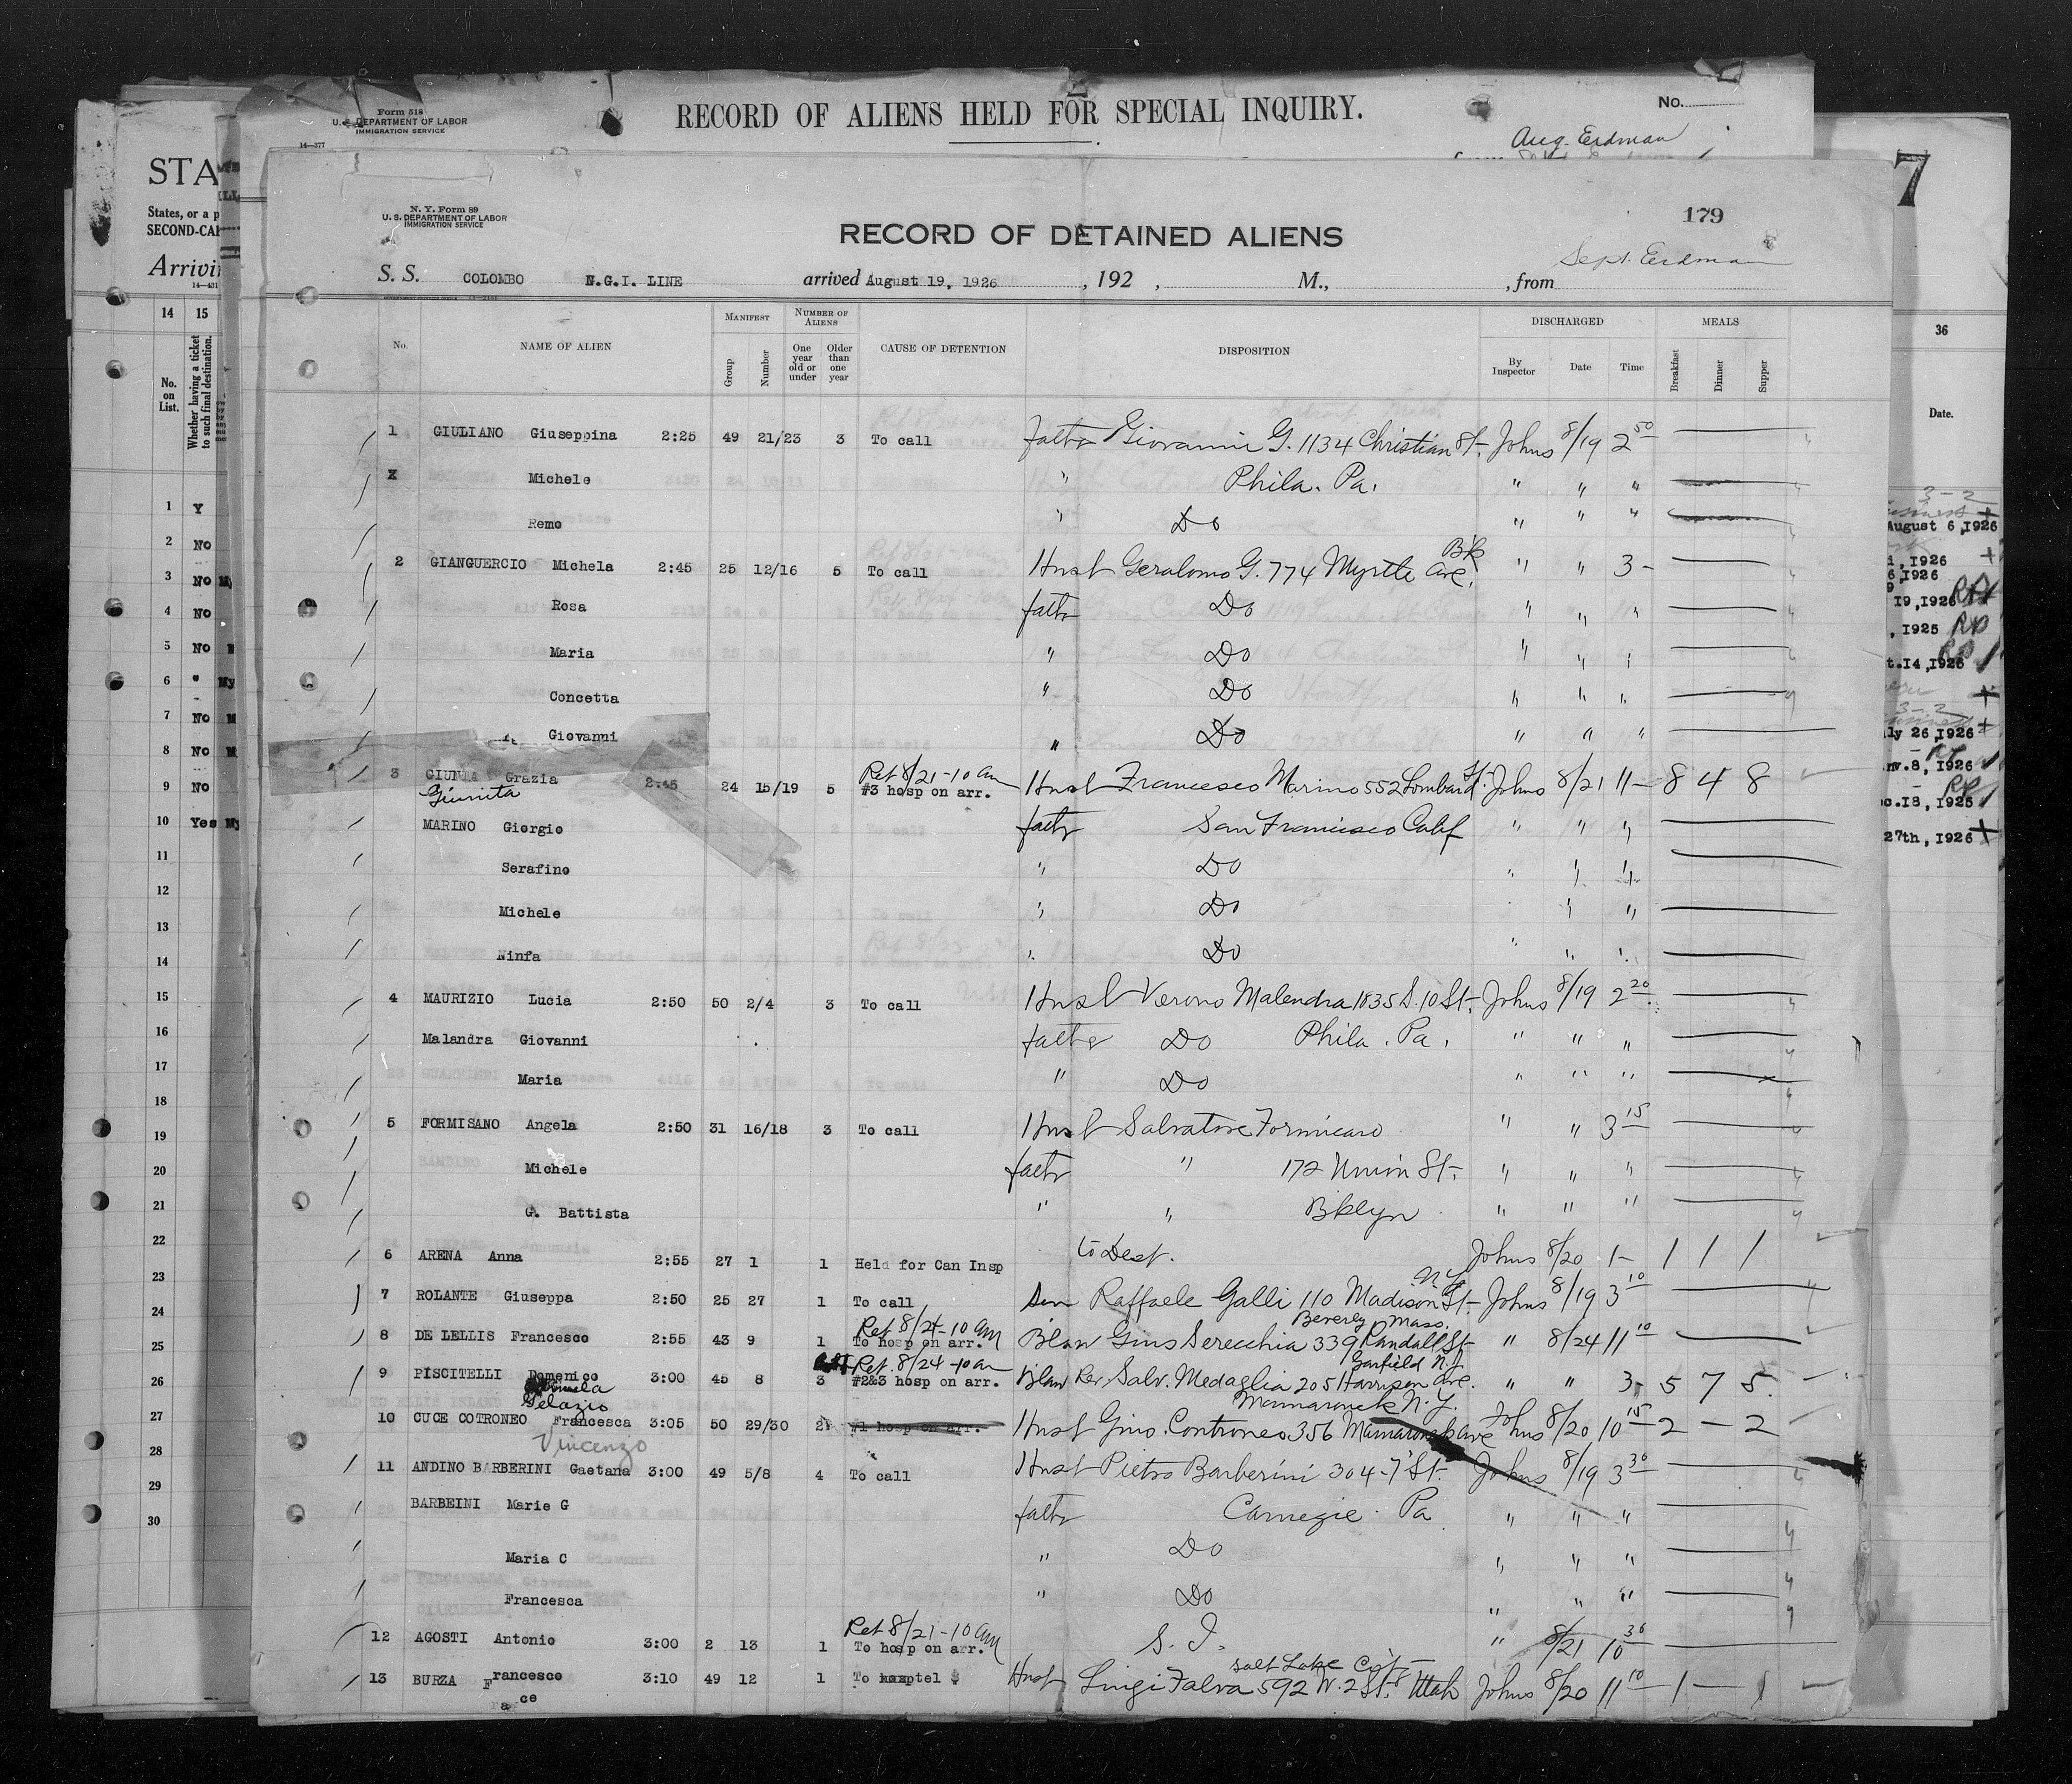 Form 518
U. S. DEPARTMENT OF LABOR
IMMIGRATION SERVICE
14—377
RECORD OF ALIENS HELD FOR SPECIAL INQUIRY.
No.
Aug. Erdman
7
STA
States, or a p
SECOND-CA
Arrivi
14—431
14 15
No. on List.
Whether having a ticket to such final destination.
1 Y
2 No
3 No My
4 No
5 No
6 " My
7 No M
8 No M
9 No
10 Yes My
11
12
13
14
15
16
17
18
19
20
21
22
23
24
25
26
27
28
29
30
36
Date.
3-2
August 6,1926
, 1926
6,1926
19,1926
, 1925
t.14,1926
3-2
ly 26,1926
nv.8, 1926
c.18, 1925
27th, 1926
N. Y. Form 89
U. S. DEPARTMENT OF LABOR
IMMIGRATION SERVICE
179
RECORD OF DETAINED ALIENS
Sept. Erdman
S. S. COLOMBO N.G.I. LINE arrived August 19, 1926 , 192 , M., , from
No. NAME OF ALIEN MANIFEST Group Number NUMBER OF ALIENS One year old or under Older than one year CAUSE OF DETENTION DISPOSITION DISCHARGED By Inspector Date Time MEALS Breakfast Dinner Supper
1 GIULIANO Giuseppina 2:25 49 21/23 3 To call Father Giovanni G. 1134 Christian St. Johns 8/19 2 50
X Michele " Phila. Pa. " " "
Remo " Do " " "
2 GIANGUERCIO Michela 2:45 25 12/16 5 To call Husb Geralomo G. 774 Myrtle Ave. Bk " " 3 -
Rosa fathr Do " " "
Maria " Do " " "
Concetta " Do " " "
Giovanni " Do " " "
3 GIUNTA Grazia 2:45 24 15/19 5 Ret 8/21-10 am #3 hosp on arr. Husb Francesco Marino 552 Lombard St. Johns 8/21 11 - 8 4 8
Giunita
MARINO Giorgio fathr San Francisco Calif " " "
Serafino " Do " " "
Michele " Do " "
Ninfa " Do " " "
4 MAURIZIO Lucia 2:50 50 2/4 3 To call Husb Verono Malendra 1835 S. 10 St. Johns 8/19 2 20
Malandra Giovanni father Do Phila. Pa. " " "
Maria " Do " " "
5 FORMISANO Angela 2:50 31 16/18 3 To call Husb Salvatore Formicaro " " 3 15
Michele fathr " 172 Union St. " " "
G. Battista " " Bklyn " " "
6 ARENA Anna 2:55 27 1 1 Held for Can Insp to Dest. Johns 8/20 1 - 1 1 1
7 ROLANTE Giuseppa 2:50 25 27 1 To call Son Raffaele Galli 110 Madison St. N.Y. Johns 8/19 3 10
8 DE LELLIS Francesco 2:55 43 9 1 Ret 8/24-10 am To hosp on arr. Blaw Gino Serecchia 339 Randall St Beverly Mass. " 8/24 11 10
9 PISCITELLI Domenico 3:00 45 8 3 Ret. 8/24-10am #2&3 hosp on arr. Blaw Rev Salv. Medaglia 205 Harrison Ave. Garfield N.J. " " 3 - 5 7 5
Gelazio
10 CUCE COTRONEO Francesca 3:05 50 29/30 2 #1 hosp on arr. Husb Gino. Controneo 356 Mamaroneck ave Mamaroneck N.Y. Johns 8/20 10 15 2 - 2
Vincenzo
11 ANDINO BARBERINI Gaetana 3:00 49 5/8 4 To call Husb Pietro Barberini 304-7 St. Johns 8/19 3 30
BARBEINI Marie G fathr Carnegie Pa " " "
Maria C " Do " " "
Francesca " Do " " "
12 AGOSTI Antonio 3:00 2 13 1 Ret 8/21-10 am To hosp on arr. S. I. " 8/21 10 30
13 BURZA Francesco 3:10 49 12 1 To tel $ Husb Luigi Falva 592 W. 2 St. Salt Lake City Utah Johns 8/20 11 10 1 - 1
ce